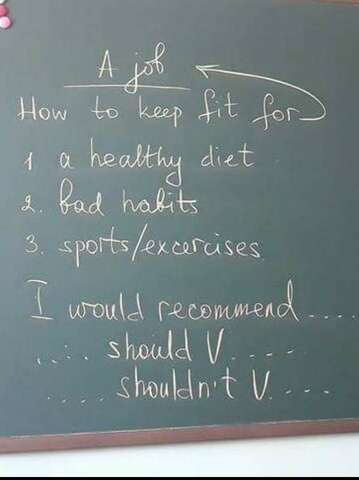 A job
How to keep fit for
1 a healthy diet
2. bad habits
3. sports/excercises
I would recommend....
.... should V.....
..... shouldn't V.....